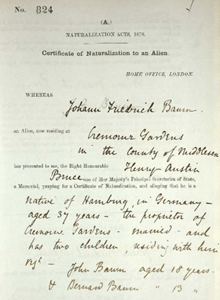 No. 824
(A.)
NATURALIZATION ACTS, 1870.
Certificate of Naturalization to an Alien.
HOME OFFICE, LONDON.
WHEREAS
Johann Friedrich Baum
an Alien, now residing at Cremorne Gardens
in the County of Middlesex
has presented to me, the Right Honourable Henry Austin
Bruce one of Her Majesty's Principal Secretaries of State,
a Memorial, praying for a Certificate of Naturalization, and alleging that he is a
native of Hamburg, in Germany —
aged 37 years — the proprietor of
Cremorne Gardens — married — and
has two children, residing with him
John Baum aged 18 years
& Bernard Baum " 13 "